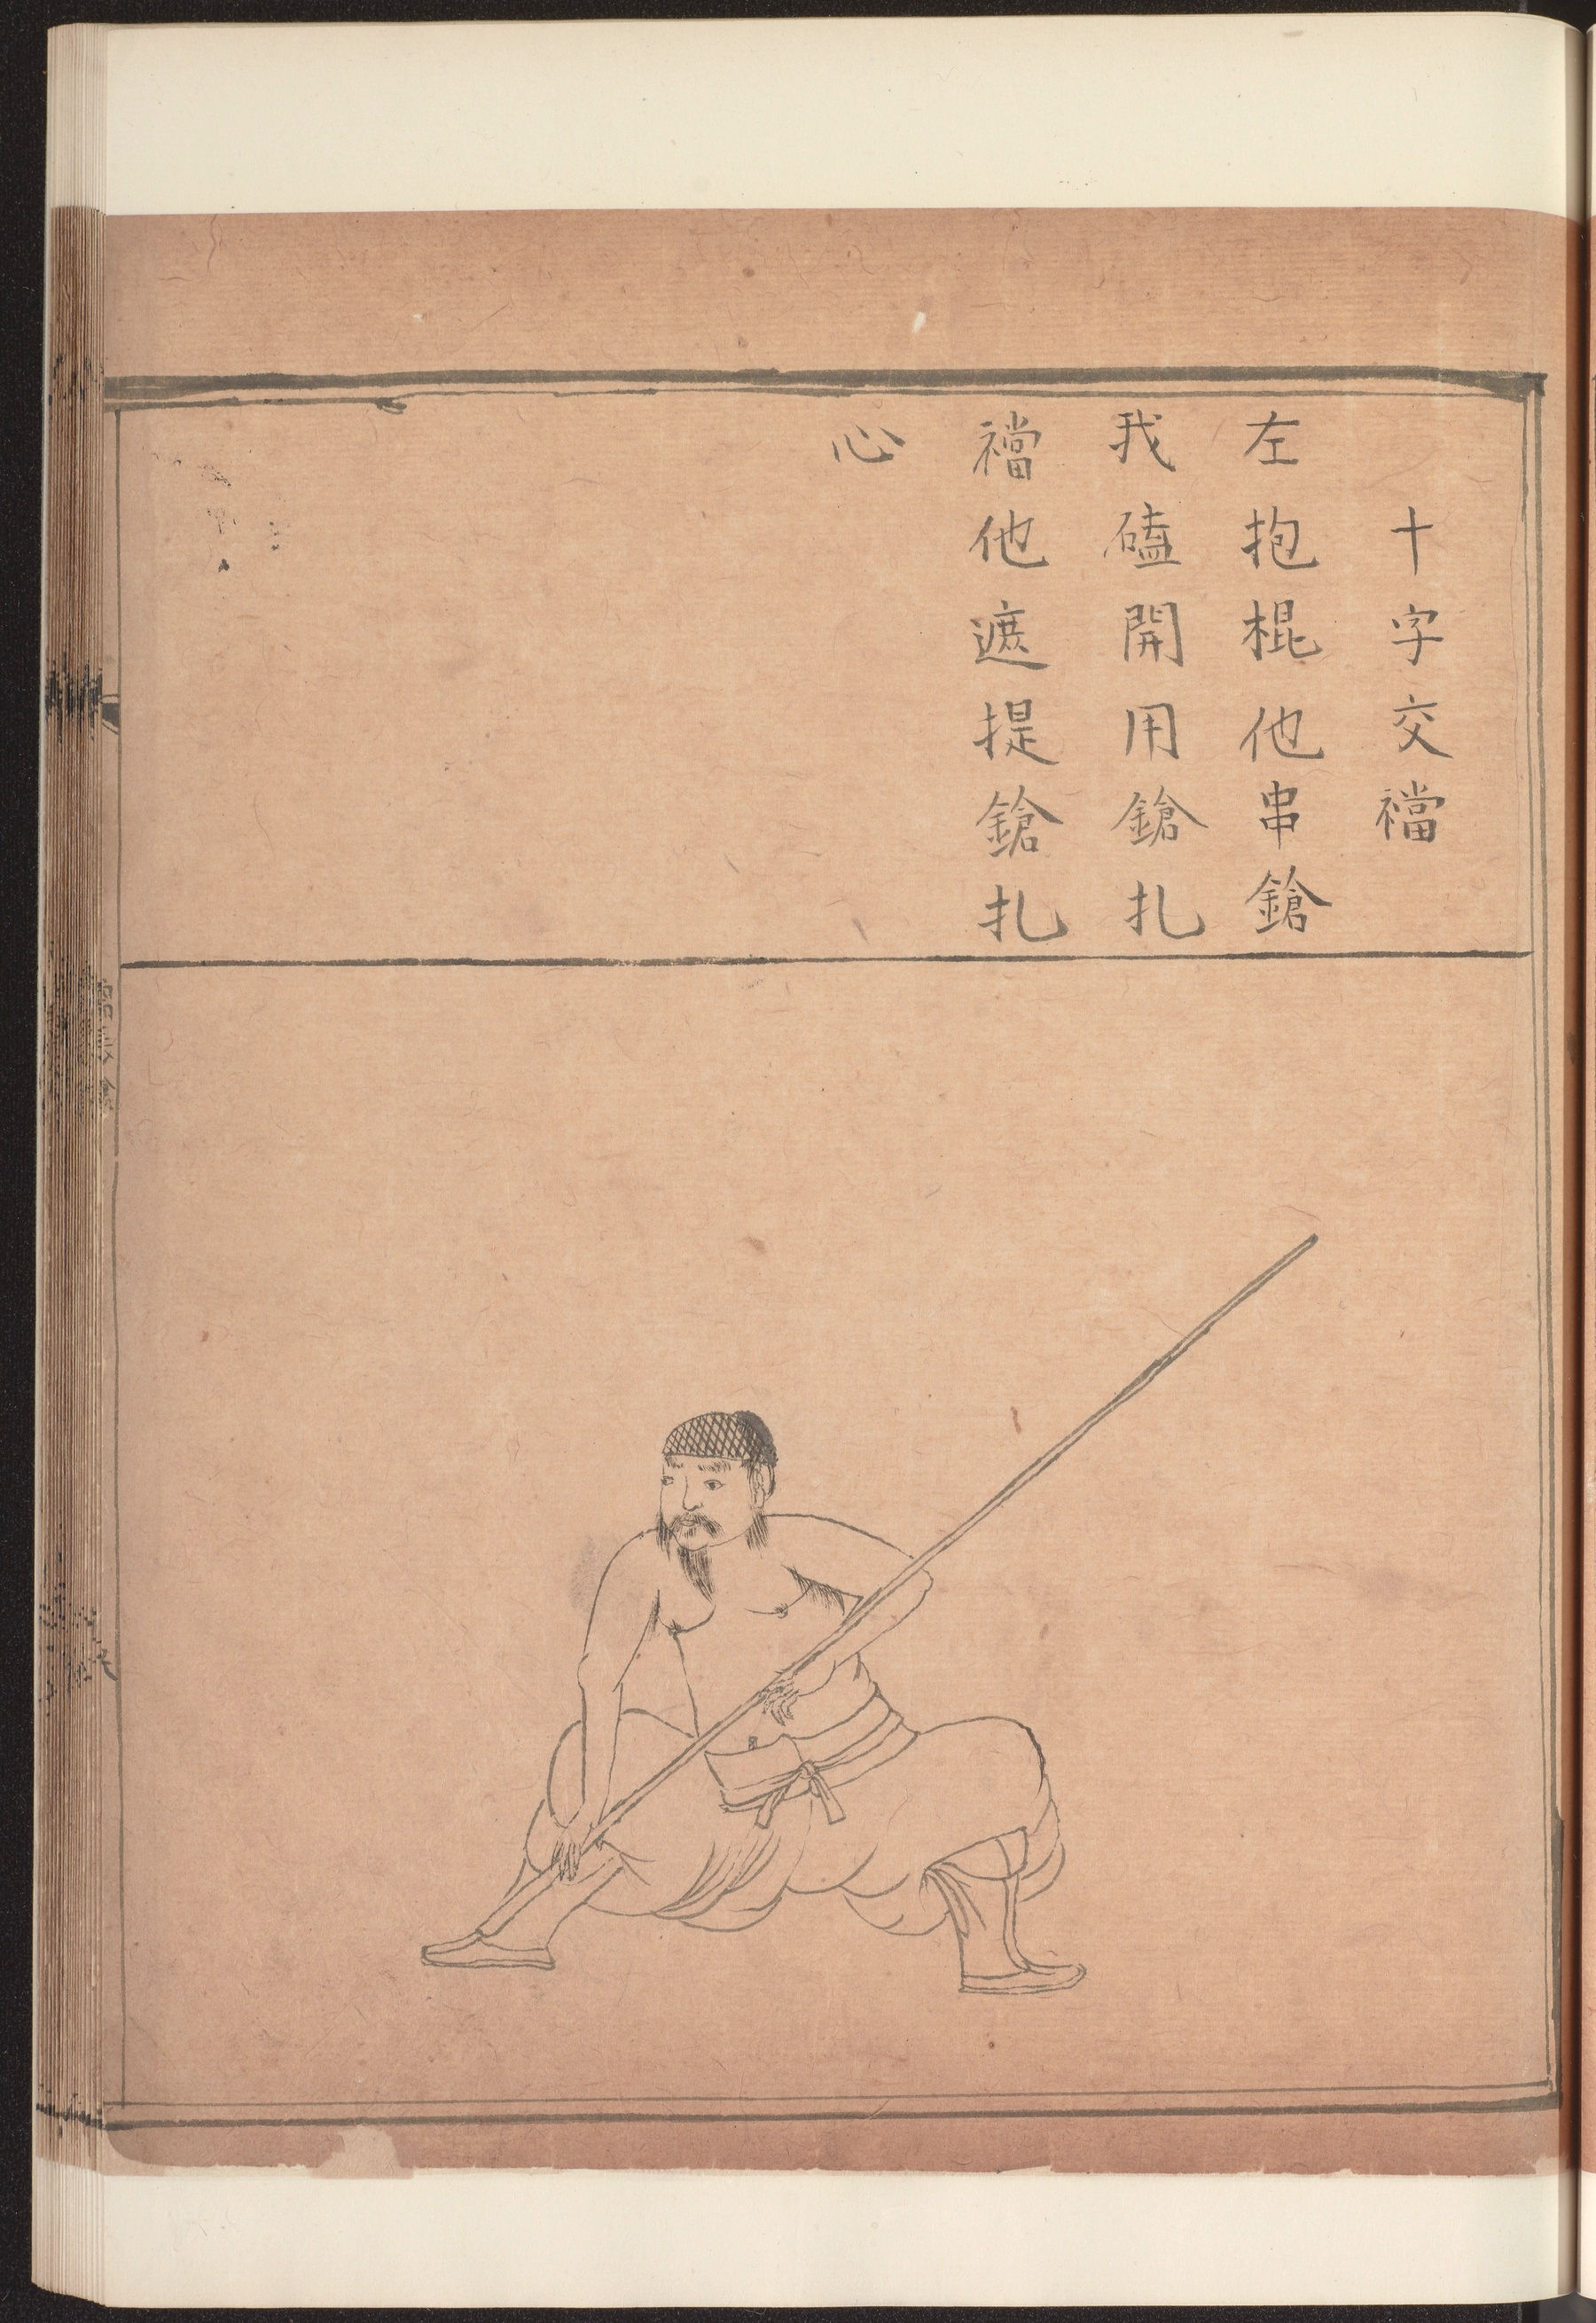 十字交襠
左抱棍他串鎗
我磕開用鎗扎
襠他遮提鎗扎
心